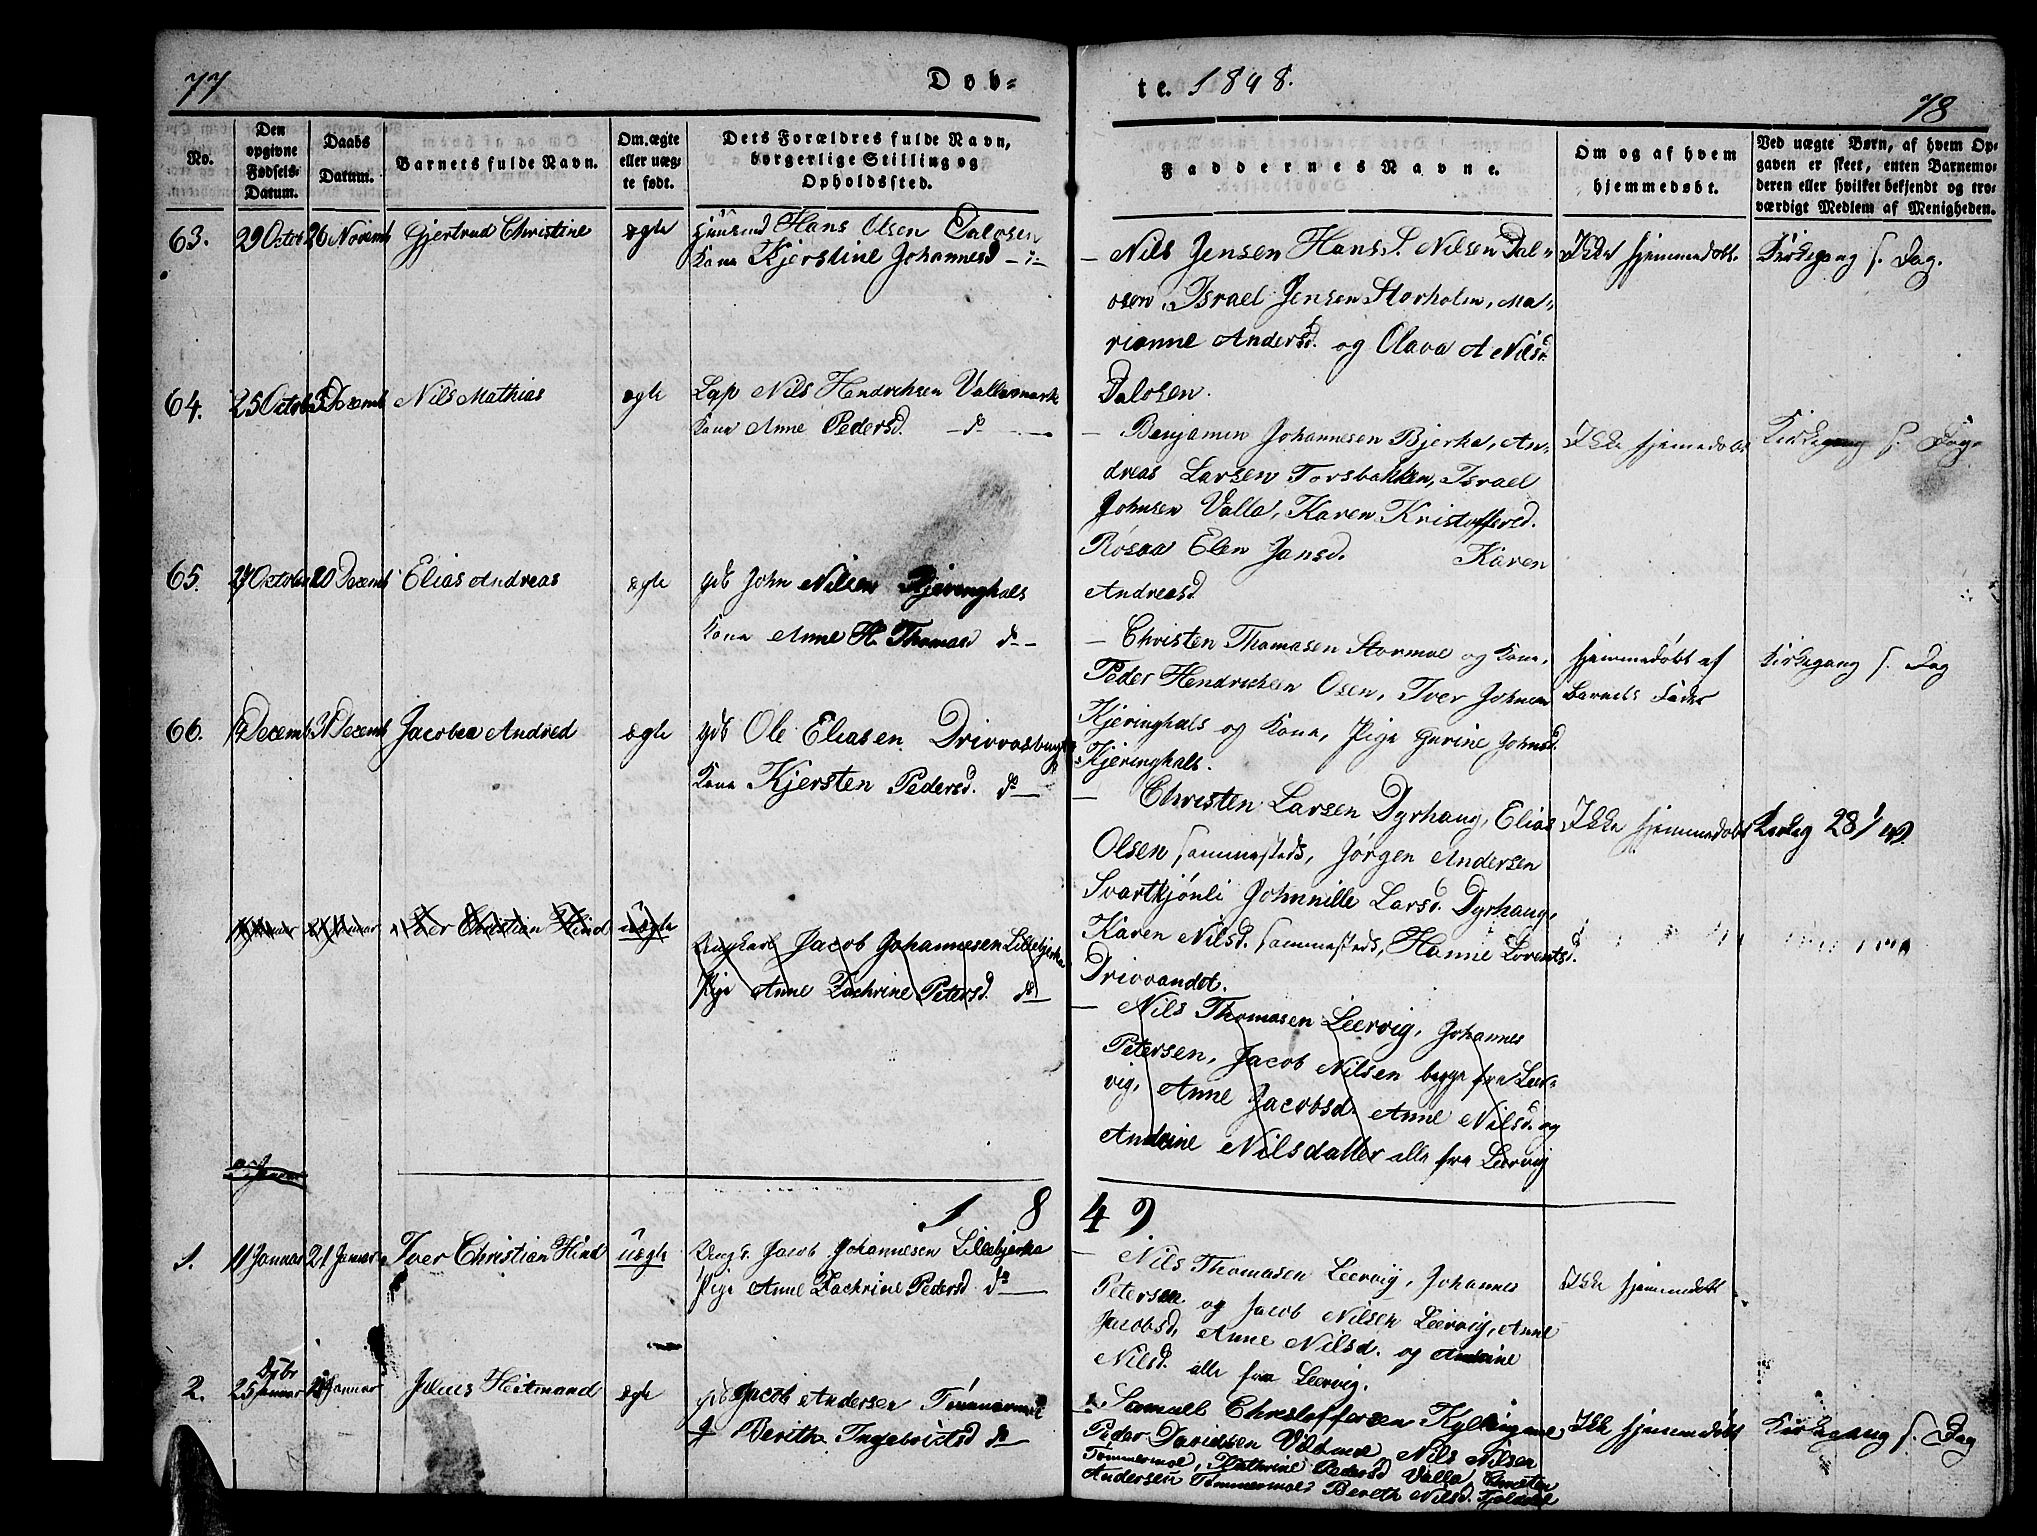 77
Døb-
te. 1848.
78
No.
Den opgivne Fødsels-Datum.
Daabs Datum.
Barnets fulde Navn.
Om ægte eller uæg-te født.
Dets Forældres fulde Navn, borgerlige Stilling og Opholdssted.
Faddernes Navne.
Om og af hvem hjemmedøbt.
Ved uægte Børn, af hvem Op-
gaven er skeet, enten Barnemo-
deren eller hvilket bekjendt og tro-
værdigt Medlem af Menigheden.
63. 29 Octob 26 Novemb Gjertrud Christine ægte Huusmd Hans Olsen Dalosen
Kone Kjerstine Johannesd -d-
– Nils Jensen Hans S. Nilsen Dal-
osen, Israel Jensen Storholm, Ma-
rianne Andersd. og Olava A Nilsd.
Dalosen.
Ikke hjemmedøbt. Kirkegang s. Dag.
64. 25 Octob 3 Decemb Nils Mathias ægte Lap Nils Hendrichsen Vallesmark
Kone Anne Pedersd. -d-
– Benjamin Johannesen Bjerke, An-
dreas Larsen Forsbakken, Israel
Johnsen Valla, Karen Kristoffersd.
Røsaa Elen Jansd. Karen
Andreasd
Ikke hjemmedøbt Kirkegang s. Dag
65. 27 October 20 Decemb Elias Andreas ægte gdb John Nilsen Kjeringhals
Kone Anne H. Thomasd d–
– Christen Thomasen Stormoe og Kone,
Peder Hendrichsen Osen, Iver Johnsen
Kjeringhals og Kone, Pige Gurine Johnsd.
Kjeringhals.
hjemmedøbt af
Barnets Fader
Kirkegang s. Dag
66. 17 Decemb 31 Decemb Jacobea Andred ægte gdb Ole Eliasen Drivvasbugt
Kone Kjersten Pedersd. d–
– Christen Larsen Dyrhaug, Elias
Olsen sammesteds, Jørgen Andersen
Svartkjønli Johnnille Larsd. Dyrhaug,
Karen Nilsd. sammesteds, Hanne Lorentsd.
Drivvandet.
Ikke hjemmedøbt Kirkeg 28/1 49.
Iver Christian Hind uægte
Ungkarl Jacob Johannesen Lillebjerka
Pige Anne Zachrine Petersd. d–
– Nils Thomasen Leervig, Johannes
Petersen, Jacob Nilsen begge fra Leer-
vig, Anne Jacobsd. Anne Nilsd. og
Andrine Nilsdatter alle fra Leervig
1849
1. 11 Januar 21 Januar Iver Christian Hind uægte Ungk. Jacob Johannesen Lillebjerka
Pige Anne Zachrine Pedersd d–
– Nils Thomasen Leervig, Johannes
Petersen og Jacob Nilsen Leervig, Anne
Jacobsd, Anne Nilsd. og Andrine
Nilsd. alle fra Leervig.
Ikke hjemmedøbt
2. 25 Januar Januar Julius Heitmand ægte gdb Jacob Andersen Tømmermoe
Berithe Ingebrigtsd d–
Samuel Christoffersen Kylkingme
Peder Davidsen, Nils Nilsen
Tømmermoe, Kathrine Pedersd Valla, Christen
Andersen Tømmermoe, Bereth Nilsd.
Ikke hjemmedøbt Kirkegang s. Dag